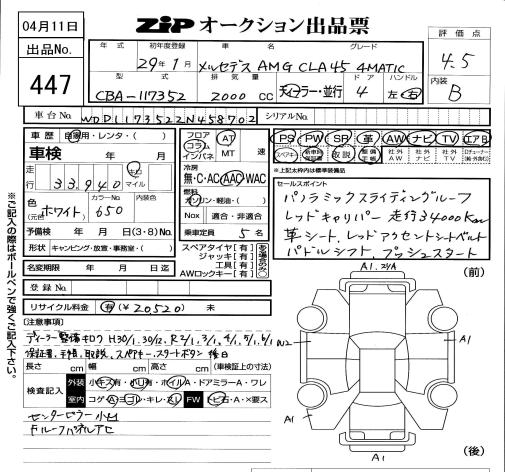 04月11日
ZIP オークション出品票
出品No.
447
年式 初年度登録 車名 グレード
29年1月 メルセデス AMG CLA45 4MATIC
型式 排気量 ドア ハンドル
CBA-117352 2000cc ディーラー・並行 4 左・右
評価点
4.5
内装
B
車台No. WDD1173522N458702 シリアルNo.
車歴 自家用・レンタ・( )
車検 年 月
走行 33,940 キロ マイル
色(元色) ホワイト カラーNo. 650 内装色
予備検 年 月 日 (3・8)No.
形状 キャンピング・放置・事務室・( )
名変期限 年 月 日迄
登録No.
リサイクル料金 有(¥20520) 未
フロア コラム インパネ AT MT 速
冷房 無・C・AC・AAC・WAC
燃料 ガソリン・軽油・( )
Nox 適合・非適合
乗車定員 5 名
スペアタイヤ[有]
ジャッキ[有]
工具[有]
AWロックキー[有]
PS PW SR 革 AW ナビ TV エアB
スペアキー 取説 社外AW 社外ナビ 社外TV
※上記太枠内は標準装備品
セールスポイント
パノラミックスライディングルーフ
レッドキャリパー 走行34000Km
革シート、レッドアクセントシートベルト
パドルシフト、プッシュスタート
※ご記入の際はボールペンで強くご記入下さい。
[注意事項]
ディーラー整備キロク H30/1. 30/12. R2/1. 3/1. 4/1. 5/1. 6/1
保証書、手帳、取説、スペアキー、スタートボタン 後日
長さ cm 幅 cm 高さ cm (車検証上の寸法)
検査記入 外装 小キズ有・小凹有・ホイルA・ドアミラーA・ワレ
室内 コゲ・A・ヨゴレ・キレ・スレ FW トビ石・A・×要ス
センターピラー小凹
(前)
A1. コケA
W2
A1
A1
A1
A1
(後)